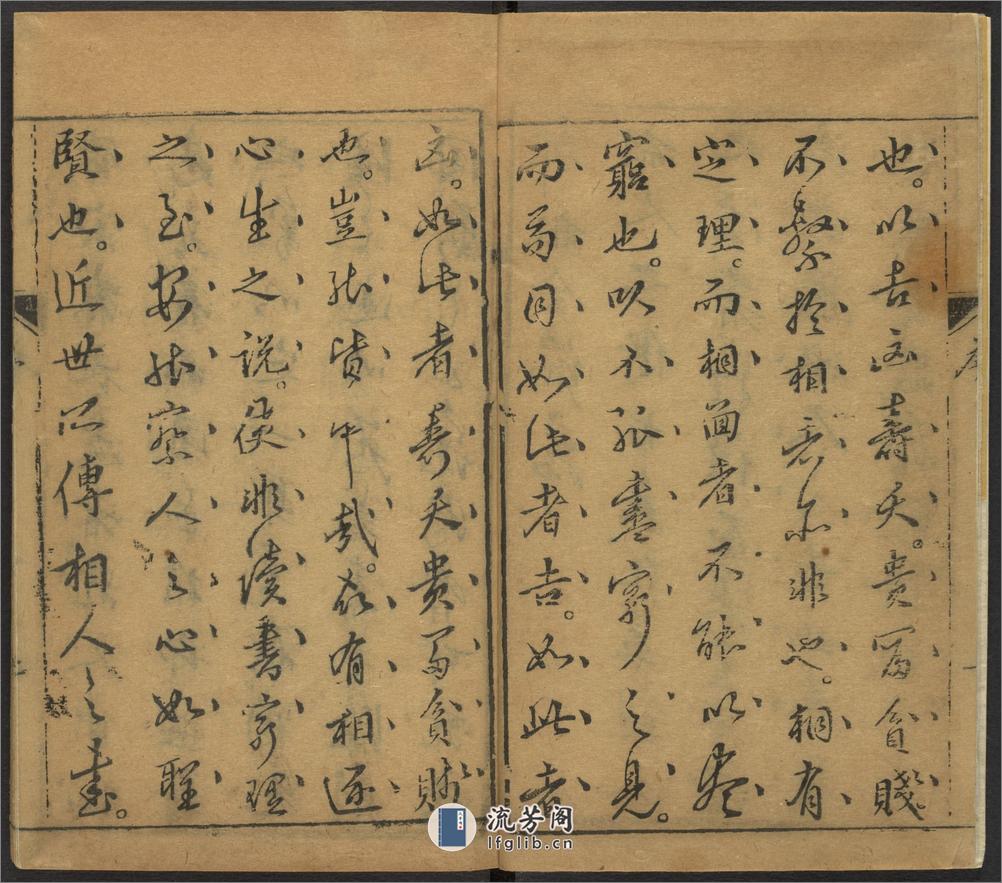 序
也。以吉凶壽夭。貴富貧賤
不繫於相者亦非也。相有
定理。而相面者不能以盡
窮也。以不能盡窮之見。
而目如此者吉。如此者
凶。如此者壽夭貴富貧賤
也。豈能皆中哉。故有相逐
心生之說。使非讀書窮理
之至。安能察人之心如聖
賢也。近世所傳相人之書。
流芳阁
lfglib.cn